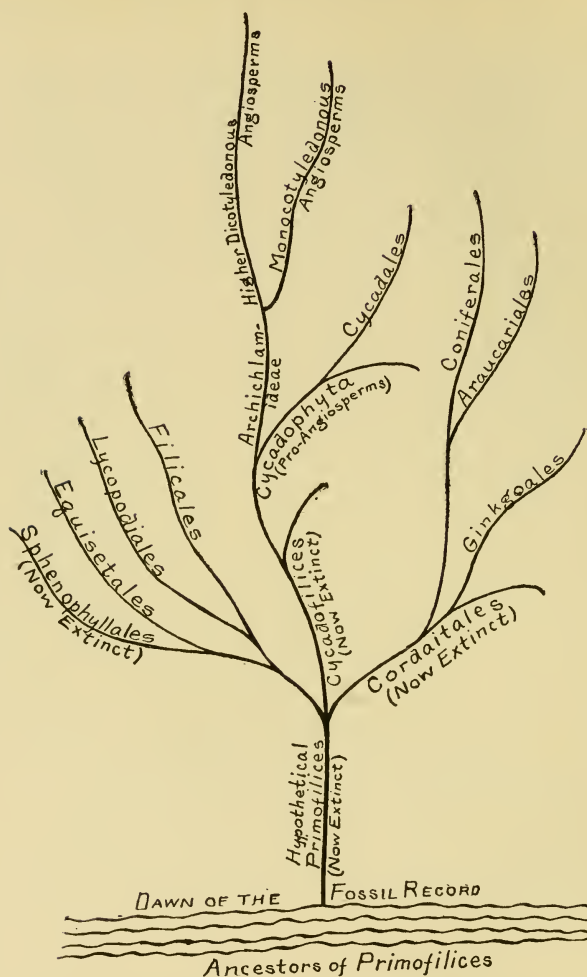 Higher Dicotyledonous
Angiosperms
Monocotyledonous
Angiosperms
Archichlam-
ideae
Cycadales
Cycadophyta
(Pro-Angiosperms)
Coniferales
Araucariales
Ginkgoales
Filicales
Lycopodiales
Equisetales
Sphenophyllales
(Now Extinct)
Cycadofilices
(Now Extinct)
Cordaitales
(Now Extinct)
Hypothetical
Primofilices
(Now Extinct)
DAWN OF THE FOSSIL RECORD
Ancestors of Primofilices